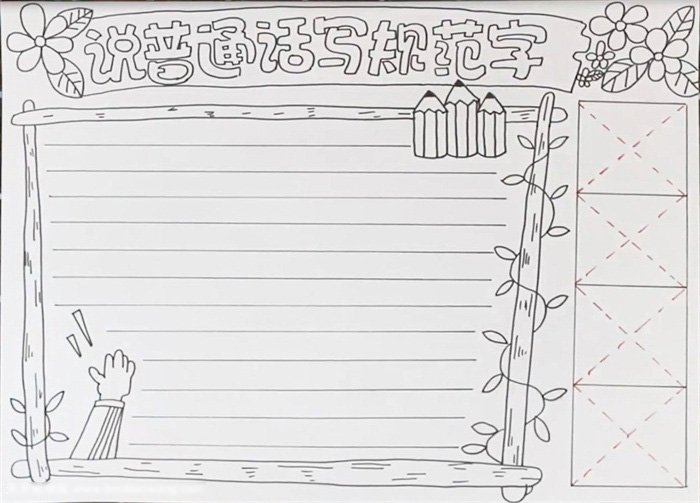 说普通话写规范字